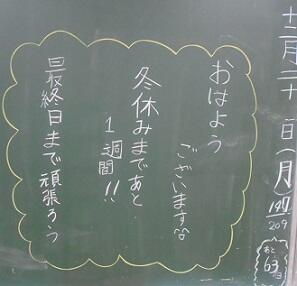 十二月二十日(月)
147/209
あと
63日
おはよう
ございます
冬休みまであと
1週間!!
最終日まで頑張ろう